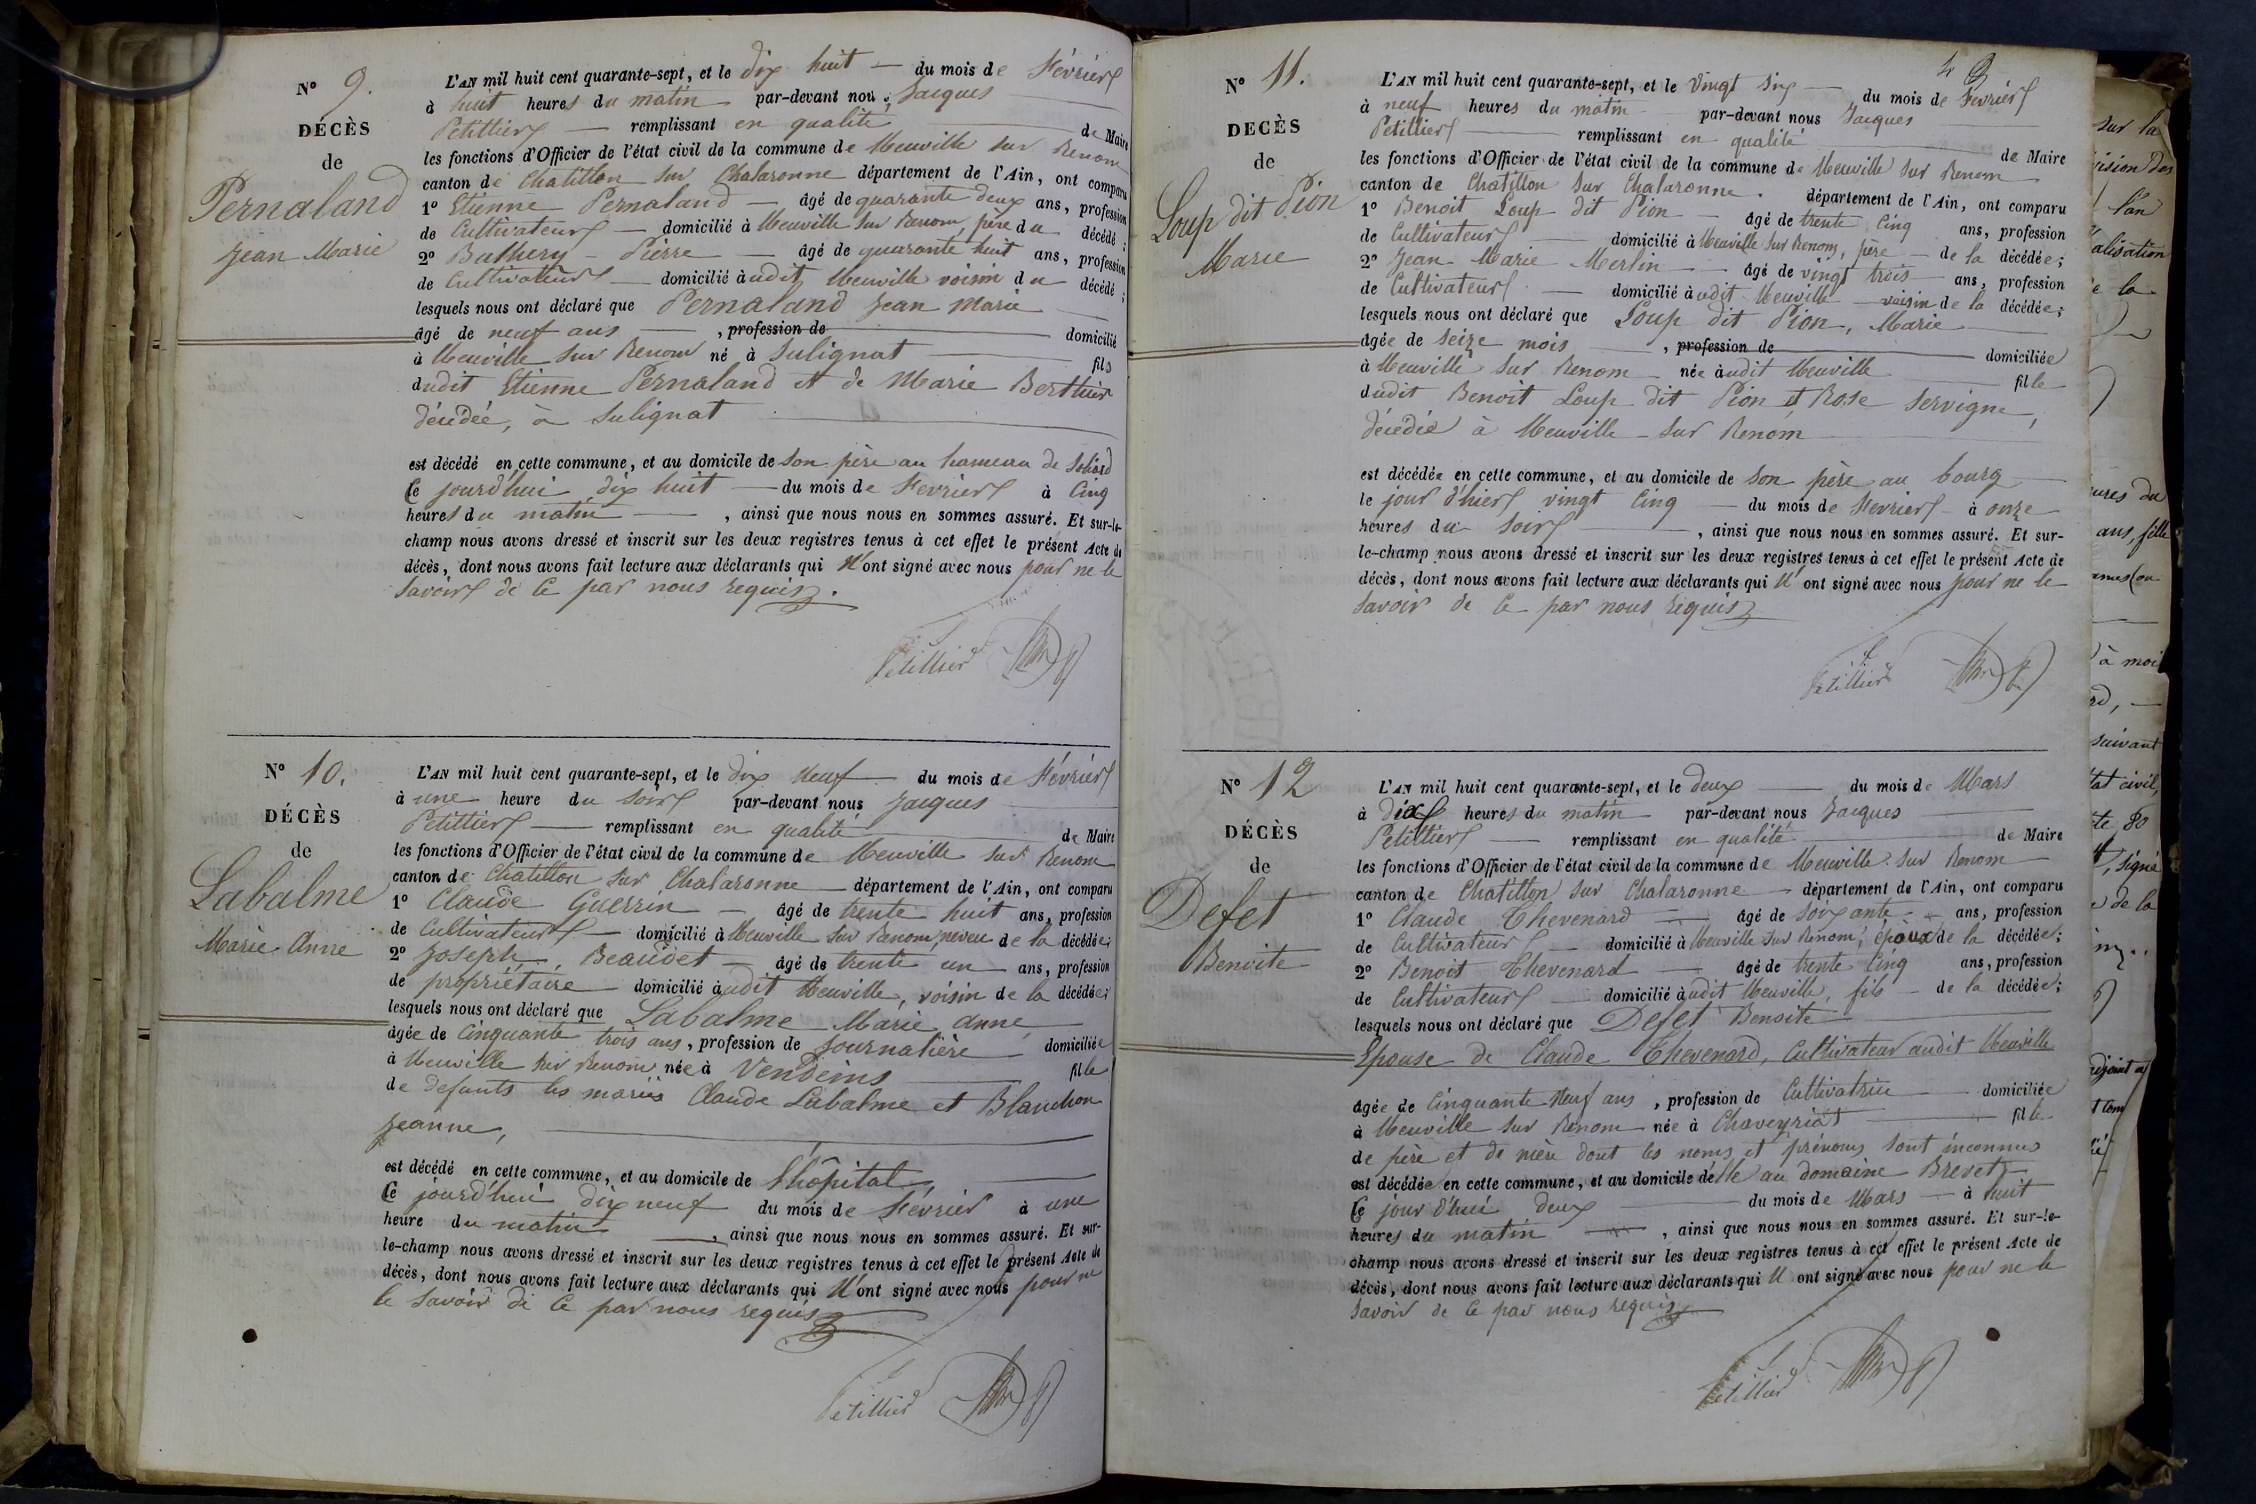 N° 9.
DÉCÈS
de
Pernaland
Jean Marie
L'AN mil huit cent quarante-sept, et le dix huit — du mois de Février
à huit heures du matin par-devant nous Jacques
Petillier — remplissant en qualité de Maire
les fonctions d'Officier de l'état civil de la commune de Neuville sur Renom
canton de Chatillon sur Chalaronne département de l'Ain, ont comparu
1° Etienne Pernaland — âgé de quarante deux ans, profession
de Cultivateur — domicilié à Neuville sur Renom, père du décédé;
2° Buthery - Pierre — âgé de quarante huit ans, profession
de Cultivateur — domicilié audit Neuville voisin du décédé;
lesquels nous ont déclaré que Pernaland Jean Marie
âgé de neuf ans —, profession de domicilié
à Neuville sur Renom né à Sulignat fils
dudit Etienne Pernaland et de Marie Berthier
décédée, à Sulignat
est décédé en cette commune, et au domicile de son père au hameau de
Ce jourd'hui dix huit — du mois de Fevrier à Cinq
heures du matin —, ainsi que nous nous en sommes assuré. Et sur-le-
champ nous avons dressé et inscrit sur les deux registres tenus à cet effet le présent Acte de
décès, dont nous avons fait lecture aux déclarants qui N'ont signé avec nous pour ne le
savoir de ce par nous requis.
Petillier
N° 10.
DÉCÈS
de
Labalme
Marie Anne
L'AN mil huit cent quarante-sept, et le dix Neuf — du mois de Février
à une heure du soir par-devant nous Jacques
Petittier — remplissant en qualité de Maire
les fonctions d'Officier de l'état civil de la commune de Neuville sur Renom
canton de Chatillon sur Chalaronne — département de l'Ain, ont comparu
1° Claude Guerrin — âgé de trente huit ans, profession
de Cultivateur — domicilié à Neuville sur Renom, neveu de la décédée;
2° Joseph Beaudet — âgé de trente un ans, profession
de propriétaire — domicilié audit Neuville, voisin de la décédée;
lesquels nous ont déclaré que Labalme Marie Anne
âgée de Cinquante trois ans, profession de Journalière domiciliée
à Neuville sur Renom née à Vendeins fille
de defunts les mariés Claude Labalme et Blanchon
Jeanne,
est décédé en cette commune, et au domicile de l'hôpital,
Ce jourd'hui dix neuf du mois de Février à une
heure du matin —, ainsi que nous nous en sommes assuré. Et sur-
le-champ nous avons dressé et inscrit sur les deux registres tenus à cet effet le présent Acte de
décès, dont nous avons fait lecture aux déclarants qui N'ont signé avec nous pour ne
le savoir de ce par nous requis
Petillier
N° 11.
DECÈS
de
Loup dit Pion
Marie
L'AN mil huit cent quarante-sept, et le Vingt six — du mois de Fevrier
à neuf heures du matin par-devant nous Jacques
Petillier — remplissant en qualité de Maire
les fonctions d'Officier de l'état civil de la commune de Neuville sur Renom
canton de Chatillon sur Chalaronne. département de l'Ain, ont comparu
1° Benoit Loup dit Pion — âgé de trente Cinq ans, profession
de Cultivateur — domicilié à Neuville sur Renom, père — de la décédée;
2° Jean Marie Merlin — âgé de vingt trois — ans, profession
de Cultivateur — domicilié audit Neuville — voisin de la décédée;
lesquels nous ont déclaré que Loup dit Pion, Marie
âgée de seize mois —, profession de domiciliée
à Neuville sur Renom — née audit Neuville fille
dudit Benoit Loup dit Pion et Rose Servigne,
décédée à Neuville sur Renom
est décédée en cette commune, et au domicile de son père au bourg
le jour d'hier vingt Cinq — du mois de Fevrier à onze
heures du soir —, ainsi que nous nous en sommes assuré. Et sur-
le-champ nous avons dressé et inscrit sur les deux registres tenus à cet effet le présent Acte de
décès, dont nous avons fait lecture aux déclarants qui N'ont signé avec nous pour ne le
savoir de ce par nous requis
Petillier
N° 12
DÉCÈS
de
Defet
Benoite
L'AN mil huit cent quarante-sept, et le deux — du mois de Mars
à Dix heures du matin par-devant nous Jacques
Petillier — remplissant en qualité de Maire
les fonctions d'Officier de l'état civil de la commune de Neuville sur Renom
canton de Chatillon sur Chalaronne — département de l'Ain, ont comparu
1° Claude Thevenard — âgé de soixante — ans, profession
de Cultivateur — domicilié à Neuville sur Renom, époux de la décédée;
2° Benoit Thevenard — âgé de trente Cinq ans, profession
de Cultivateur — domicilié audit Neuville, fils — de la décédée;
lesquels nous ont déclaré que Defet Benoite
Epouse de Claude Thevenard, Cultivateur audit Neuville
âgée de Cinquante Neuf ans, profession de Cultivatrice domiciliée
à Neuville sur Renom née à Chaveyriat fille
de père et de mère dont les noms et prénoms sont inconnus
est décédée en cette commune, et au domicile d'elle au domaine Brevet
Ce jour d'hui deux — du mois de Mars — à huit
heures du matin —, ainsi que nous nous en sommes assuré. Et sur-le-
champ nous avons dressé et inscrit sur les deux registres tenus à cet effet le présent Acte de
décès, dont nous avons fait lecture aux déclarants qui N'ont signé avec nous pour ne le
savoir de ce par nous requis
Petillier
sur la
l'an
alisation
ans, fille
à moi
suivant
état civil,
signé
de la